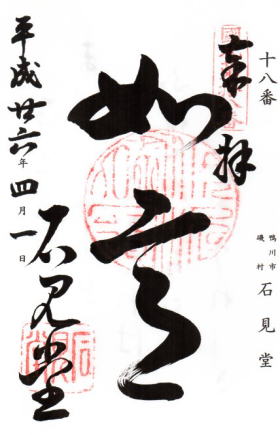 十八番
鴨川市
磯村
石見堂
奉拝
如意
平成廿六年四月一日
石見堂